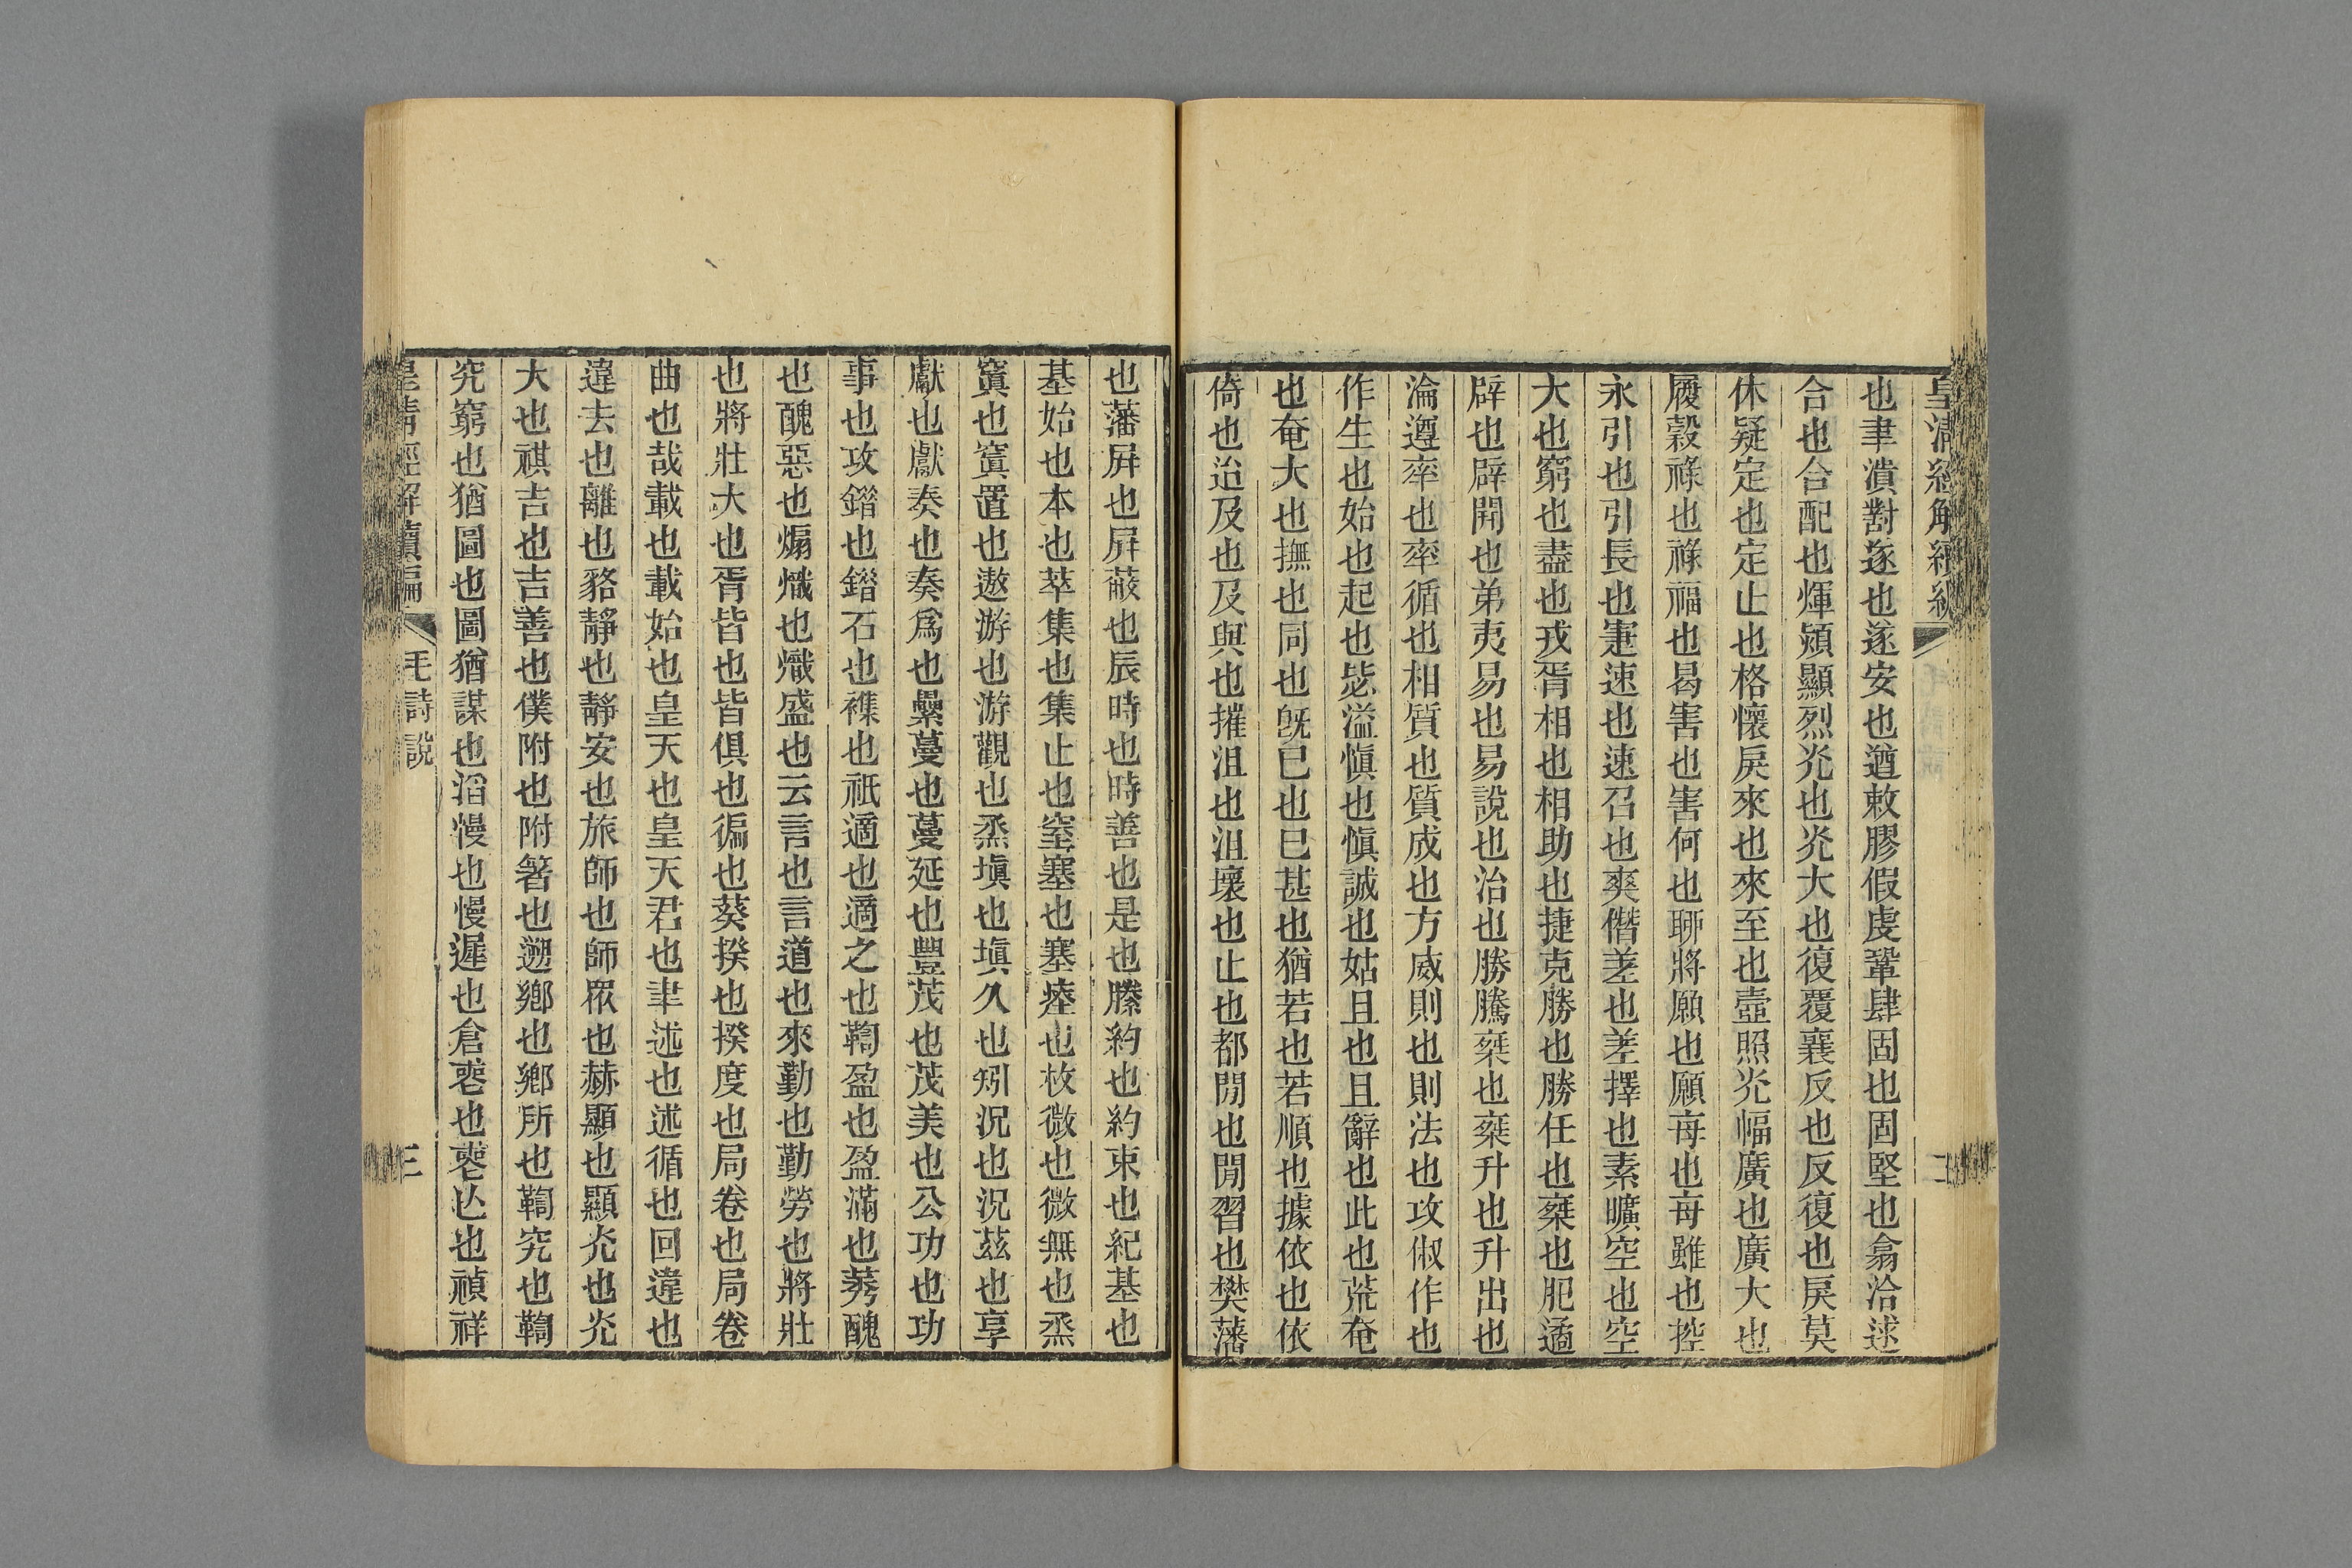 皇清經解續編
也聿潰對遂也遂安也遒敕膠假虔鞏肆固也固堅也翕洽逑
合也合配也煇熲顯烈光也光大也復覆襄反也反復也戾莫
休疑定也定止也格懷戾來也來至也壼照光幅廣也廣大也
履穀祿也祿福也曷害也害何也聊將願也願每也每雖也控
永引也引長也寁速也速召也爽僭差也差擇也素曠空也空
大也窮也盡也戎胥相也相助也捷克勝也勝任也椉也肥遹
辟也辟開也弟夷易也易說也治也勝騰椉也椉升也升出也
淪遵率也率循也相質也質成也方威則也則法也攻俶作也
作生也始也起也毖溢慎也慎誠也姑且也且辭也此也荒奄
也奄大也撫也同也旣已也已甚也猶若也若順也據依也依
倚也迨及也及與也摧沮也沮壞也止也都閑也閒習也樊藩
二
也藩屛也屛蔽也辰時也時善也是也縢約也約束也紀基也
基始也本也萃集也集止也窒塞也塞瘞也枚微也微無也烝
窴也窴置也遨游也游觀也烝塡也塡久也矧況也況茲也享
獻也獻奏也奏爲也纍蔓也蔓延也豐茂也茂美也公功也功
事也攻錯也錯石也襍也祇適也適之也鞫盈也盈滿也莠醜
也醜惡也煽熾也熾盛也云言也言道也來勤也勤勞也將壯
也將壯大也胥皆也皆俱也徧也葵揆也揆度也局卷也局卷
曲也哉載也載始也皇天也皇天君也聿述也述循也回違也
違去也離也貉靜也靜安也旅師也師眾也赫顯也顯光也光
大也祺吉也吉善也僕附也附箸也遡鄉也鄉所也鞫究也鞫
究窮也猶圖也圖猶謀也滔慢也慢遲也倉喪也喪亾也禎祥
皇清經解續編 毛詩說 三